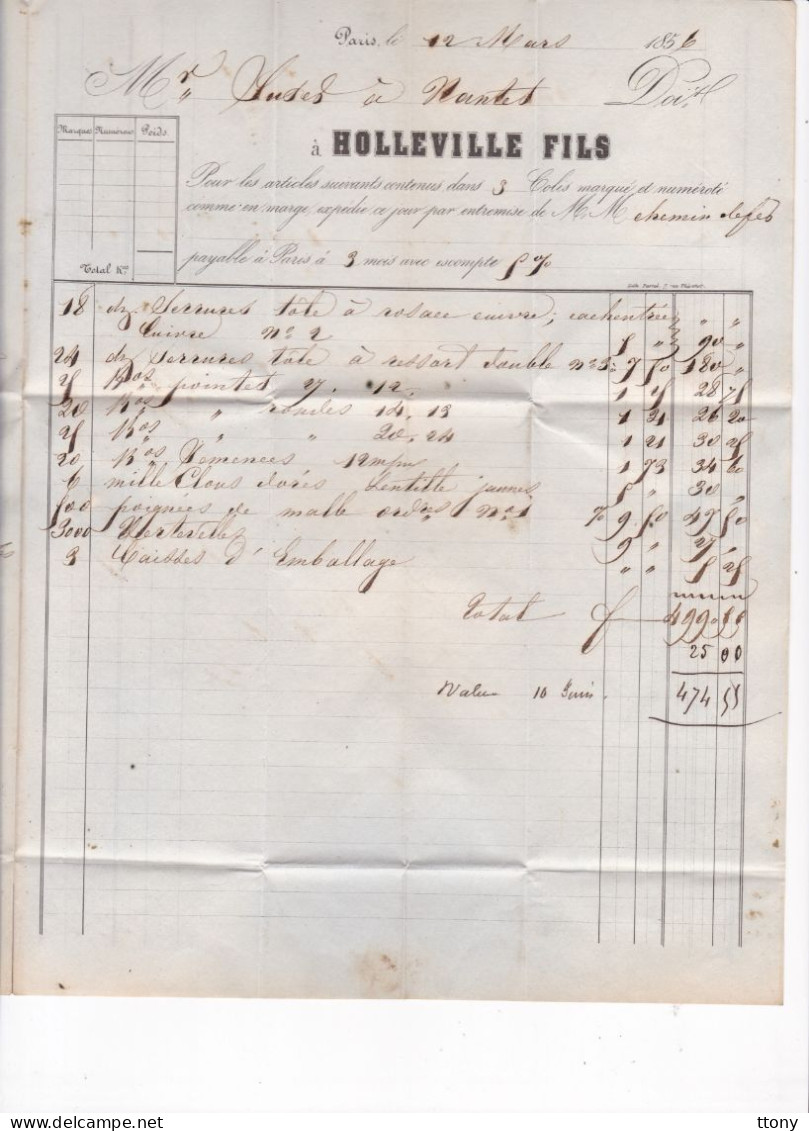 Paris, le 12 Mars 1856
Mr à Nantes Doit
à HOLLEVILLE FILS
Marques Numéros Poids
Pour les articles suivants contenus dans 3 Colis marqué et numéroté
comme en marge, expédié ce jour par entremise de M M chemin de fer
payable à Paris à 3 mois avec escompte 5 %
Total Ko.
18 dz Serrures tôle à rosace cuivre, cachentrée " "
Cuivre no 2 5 " 90 "
24 dz Serrures tôle à ressort double no 3 7 50 180 "
25 Kos pointes 7. 12 1 15 28 75
20 Kos " rondes 14. 13 1 31 26 20
25 Kos " " 20. 24 1 21 30 25
20 Kos Semences 12 1 73 34 60
6 mille Clous dorés Lentille jaunes 5 " 30 "
500 poignées de malle ordres no 1 % 9. 50 47 50
3000 9 " 27 "
3 Caisses d'Emballage " " 5 25
Total f 499 55
25 00
Valeur 10 Juin. 474 55
ttony